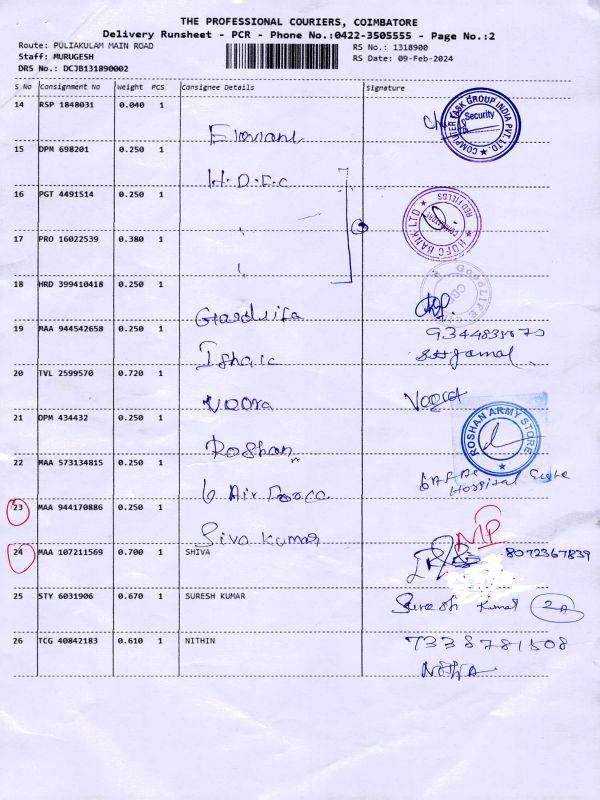 THE PROFESSIONAL COURIERS, COIMBATORE
Delivery Runsheet - PCR - Phone No.:0422-3505555 - Page No.:2
Route: PULIAKULAM MAIN ROAD RS No.: 1318900
Staff: MURUGESH RS Date: 09-Feb-2024
DRS No.: DCJB131890002
S No Consignment No Weight PCS Consignee Details Signature
14 RSP 1848031 0.040 1
COMPUTER TASK GROUP INDIA PVT LTD. Security
15 DPM 698201 0.250 1
H.D.F.C
16 PGT 4491514 0.250 1
HDFC BANK LTD RED FIELDS
17 PRO 16022539 0.380 1
18 HRD 399410418 0.250 1
19 MAA 944542658 0.250 1
20 TVL 2599570 0.720 1
Voora
21 DPM 434432 0.250 1
Roshan ROSHAN ARMY STORE
22 MAA 573134815 0.250 1
6 Air Force Hospital
23 MAA 944170886 0.250 1
Siva Kumar
24 MAA 107211569 0.700 1 SHIVA
8072367839
25 STY 6031906 0.670 1 SURESH KUMAR
Suresh Kumar
26 TCG 40842183 0.610 1 NITHIN
7338781508